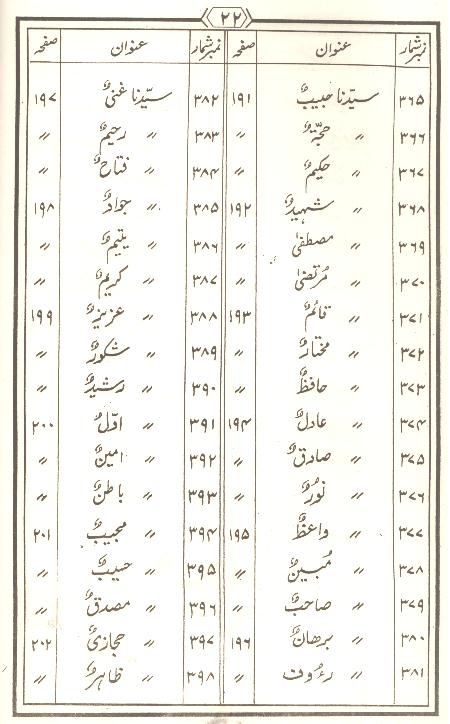 ۲۲
نمبر شمار عنوان صفحہ نمبر شمار عنوان صفحہ
۳۶۵ سیّدنا حبیبٌ ۱۹۱ ۳۸۲ سیّدنا غنیٌ ۱۹۷
۳۶۶〃 حجّۃٌ 〃 ۳۸۳ 〃 رحیمٌ 〃
۳۶۷ 〃 حکیمٌ 〃 ۳۸۴ 〃 فتاحٌ 〃
۳۶۸ 〃 شہیدٌ ۱۹۲ ۳۸۵ 〃 جوادٌ ۱۹۸
۳۶۹ 〃 مصطفیٰ 〃 ۳۸۶ 〃 یتیمٌ 〃
۳۷۰ 〃 مُرتضیٰ 〃 ۳۸۷ 〃 کریمٌ 〃
۳۷۱ 〃 قائمٌ ۱۹۳ ۳۸۸ 〃 عزیزٌ ۱۹۹
۳۷۲ 〃 مختارٌ 〃 ۳۸۹ 〃 شکورٌ 〃
۳۷۳ 〃 حافظٌ 〃 ۳۹۰ 〃 رشیدٌ 〃
۳۷۴ 〃 عادلٌ ۱۹۴ ۳۹۱ 〃 اوّلٌ ۲۰۰
۳۷۵ 〃 صادقٌ 〃 ۳۹۲ 〃 امینٌ 〃
۳۷۶ 〃 نُورٌ 〃 ۳۹۳ 〃 باطنٌ 〃
۳۷۷ 〃 واعظٌ ۱۹۵ ۳۹۴ 〃 مجیبٌ ۲۰۱
۳۷۸ 〃 مُبینٌ 〃 ۳۹۵ 〃 حسیبٌ 〃
۳۷۹ 〃 صاحبٌ 〃 ۳۹۶ 〃 مصدقٌ 〃
۳۸۰ 〃 برھانٌ ۱۹۶ ۳۹۷ 〃 حجازیٌ ۲۰۲
۳۸۱ 〃 رءوف 〃 ۳۹۸ 〃 ظاہرٌ 〃